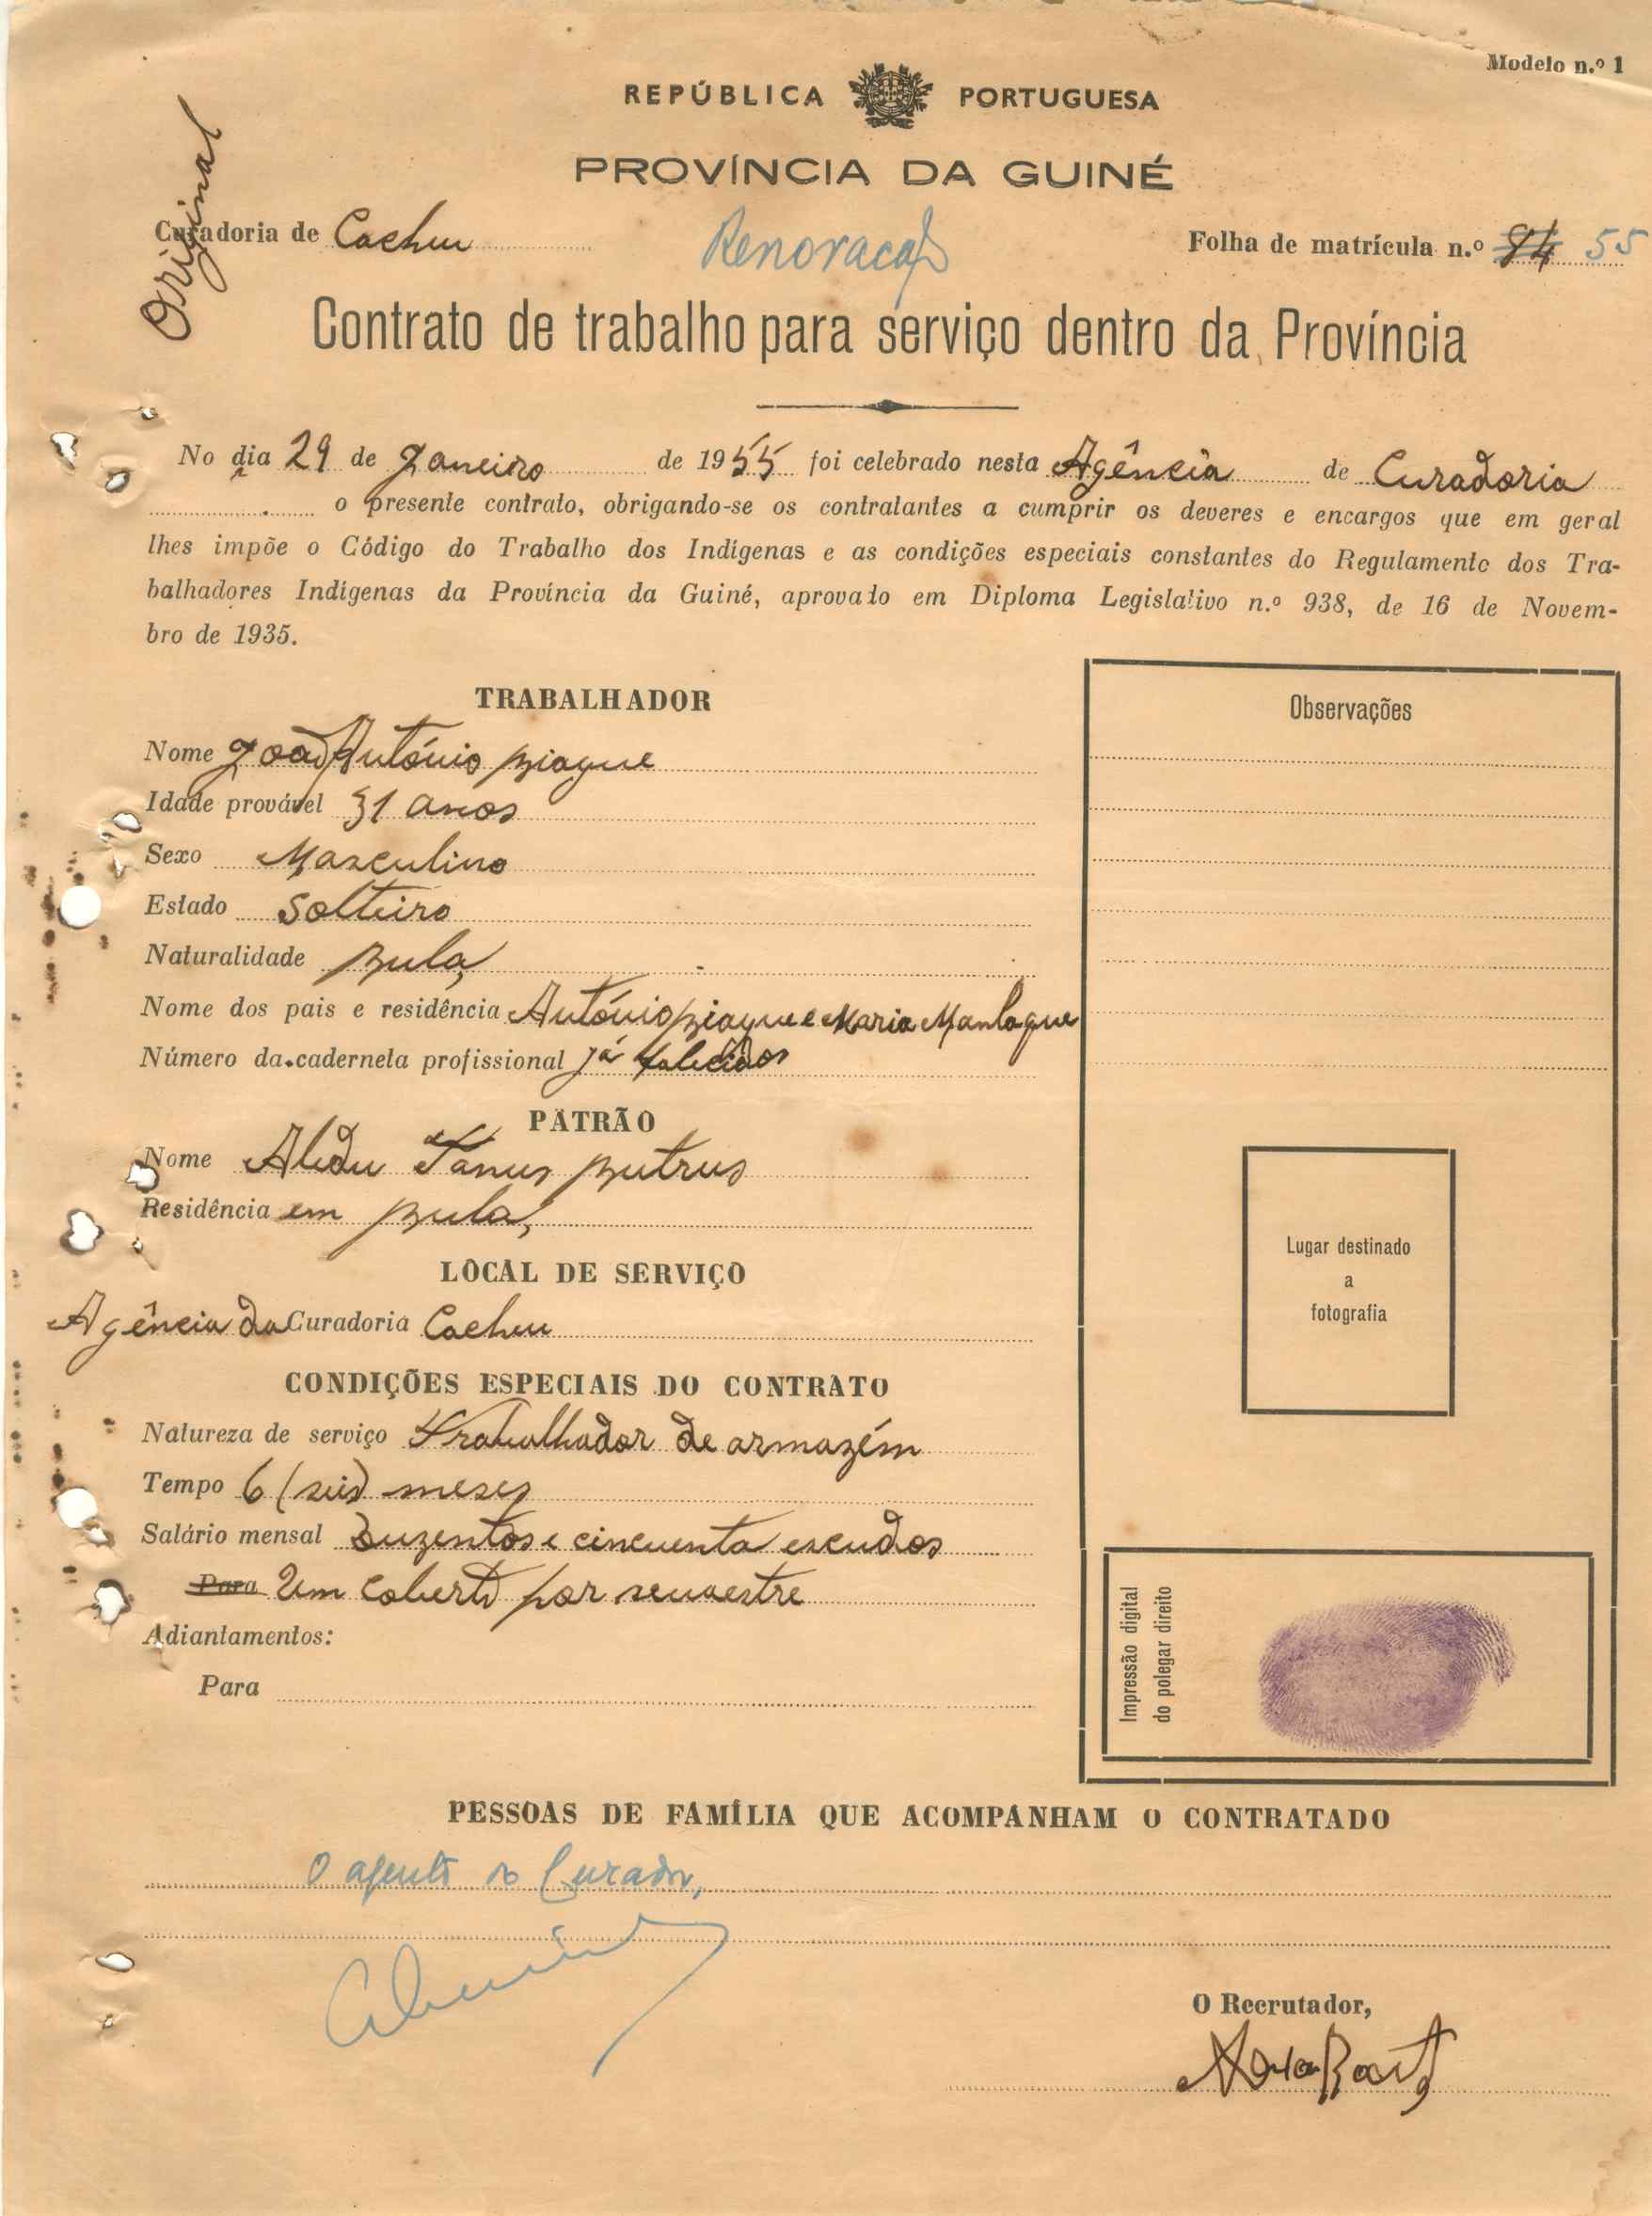 Modelo n.º 1
REPÚBLICA PORTUGUESA
PROVÍNCIA DA GUINÉ
Original
Curadoria de Cacheu
Renovação
Folha de matrícula n.º 84 55
Contrato de trabalho para serviço dentro da Província
No dia 29 de Janeiro de 1955 foi celebrado nesta Agência de Curadoria
o presente contrato, obrigando-se os contratantes a cumprir os deveres e encargos que em geral
lhes impõe o Código do Trabalho dos Indígenas e as condições especiais constantes do Regulamento dos Tra-
balhadores Indígenas da Província da Guiné, aprovado em Diploma Legislativo n.º 938, de 16 de Novem-
bro de 1935.
TRABALHADOR
Nome João António Biague
Idade provável 31 anos
Sexo Masculino
Estado Solteiro
Naturalidade Bula,
Nome dos pais e residência António Biague e Maria Manlague
Número da cadernela profissional já falecidos
PATRÃO
Nome Alidu Tanus Butrus
Residência em Bula,
LOCAL DE SERVIÇO
Agência da Curadoria Cacheu
CONDIÇÕES ESPECIAIS DO CONTRATO
Natureza de serviço Trabalhador de armazém
Tempo 6 (seis) meses
Salário mensal Duzentos e cincuenta escudos
Para Um cobertô por semestre
Adiantamentos:
Para
Observações
Lugar destinado
a
fotografia
Impressão digital
do polegar direito
PESSOAS DE FAMÍLIA QUE ACOMPANHAM O CONTRATADO
O agente do Curador,
O Recrutador,